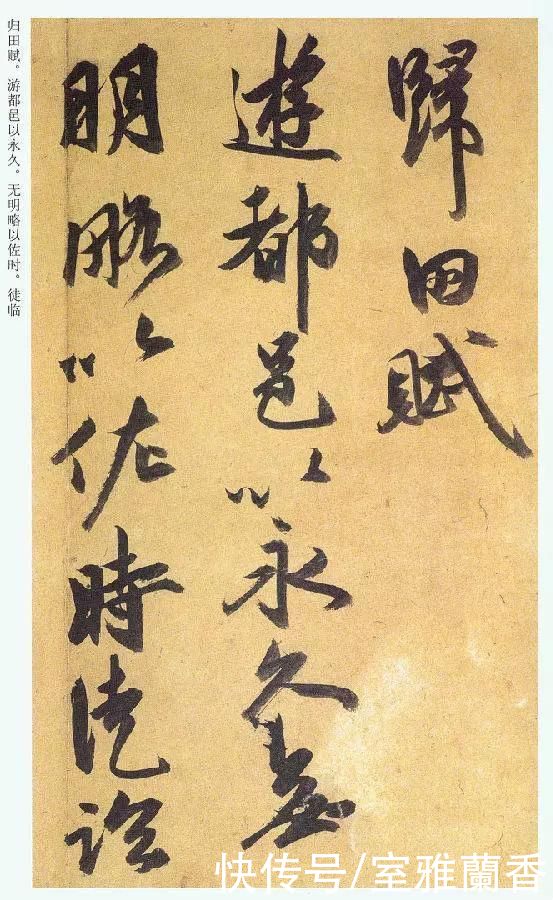 歸田賦
遊都邑以永久無
明略以佐時徒臨
归田赋。游都邑以永久。无明略以佐时。徒临
快传号/室雅蘭香